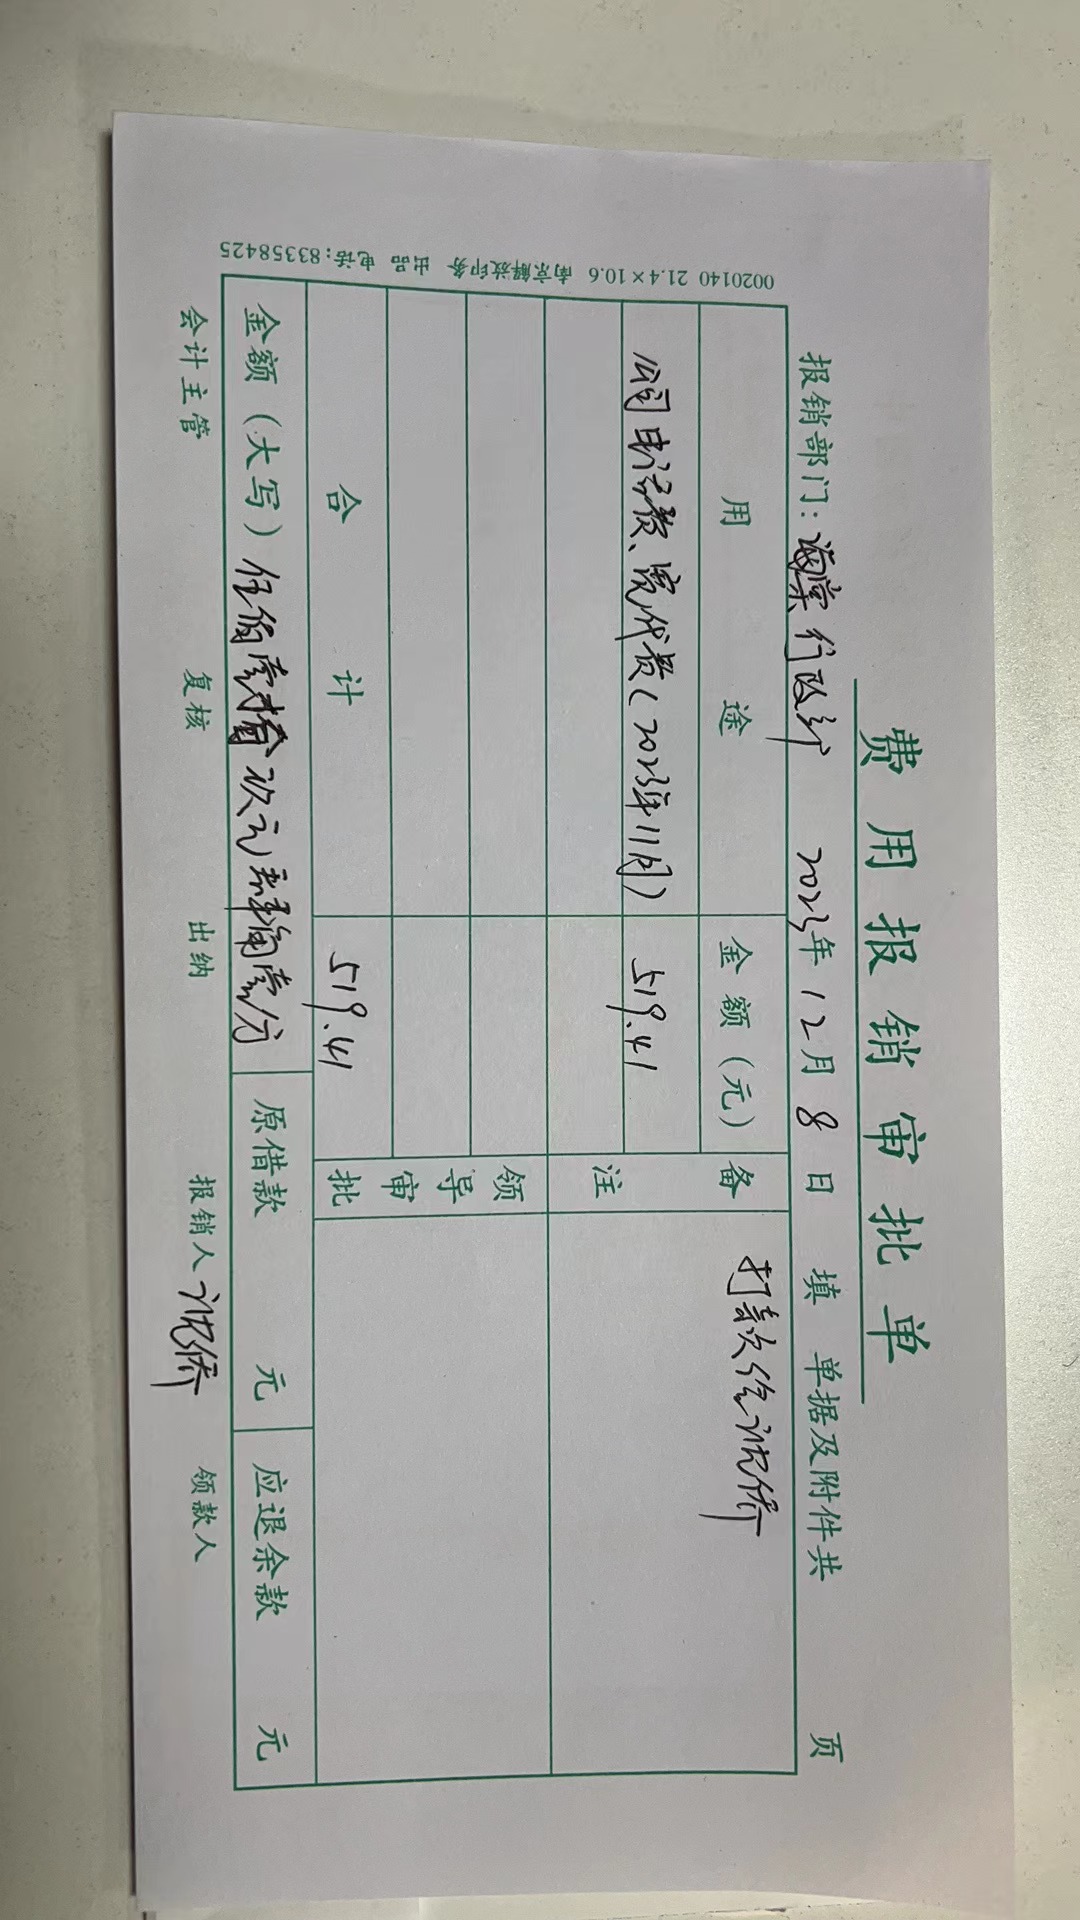 费用报销审批单
报销部门：海棠行政部 2023年12月8日填 单据及附件共 页
用途 金额（元） 备注 打款给沈侨
公司电话费、宽带费（2023年11月） 519.41
领导审批
合计 519.41
金额（大写）伍佰壹拾玖元肆角壹分 原借款 元 应退余款 元
会计主管 复核 出纳 报销人 沈侨 领款人
0020140 21.4×10.6 南京解放印务 出品 电话：83358425